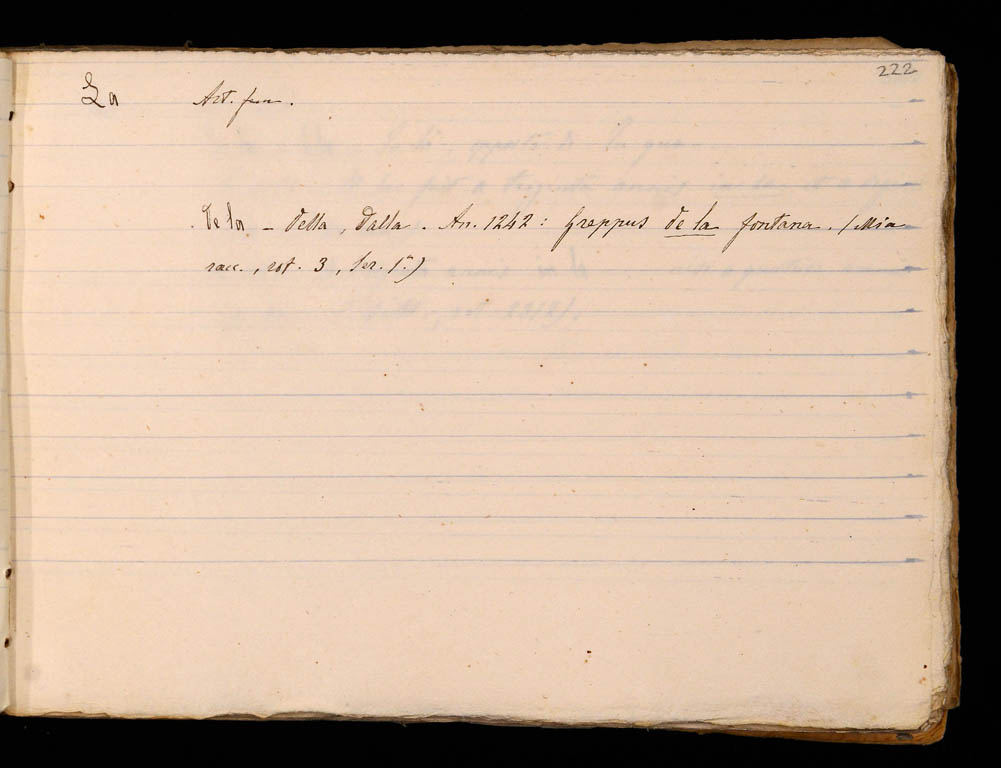 222
La Art. fem.
De la – Della, Dalla. An. 1242: Greppus de la fontana. (Mia
racc., rot. 3, Ser. 1ª)